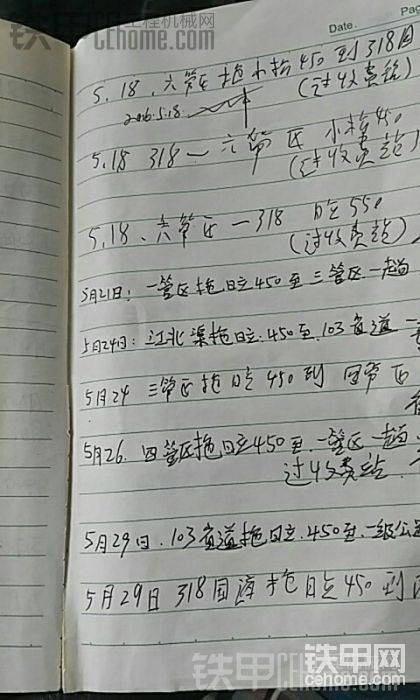 Date.
Pag
5.18. 六管区拖小松450到318国
(过收费站)
2016.5.18.
5.18 318一六管区 小松450
(过收费站)
5.18. 六管区一318 日立550
(过收费站)
5月21日: 一管区拖日立450至三管区一趟
5月24日: 江北渠拖日立.450至.103省道一
5月24 三管区拖日立450到 四管区
5月26. 四管区拖日立450至.一管区一趟.
过收费站.
5月29日.103省道拖日立.450至.一级公
5月29日 318国道拖日立450到
铁甲工程机械网
cehome.com
铁甲网
cehome.com